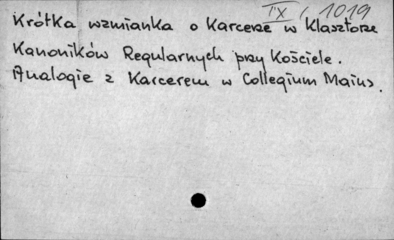 IX / 1019
Krótka wzmianka o Karcerze w Klasztorze
Kanoników Regularnych przy Kościele.
Analogie z Karcerem w Collegium Maius.